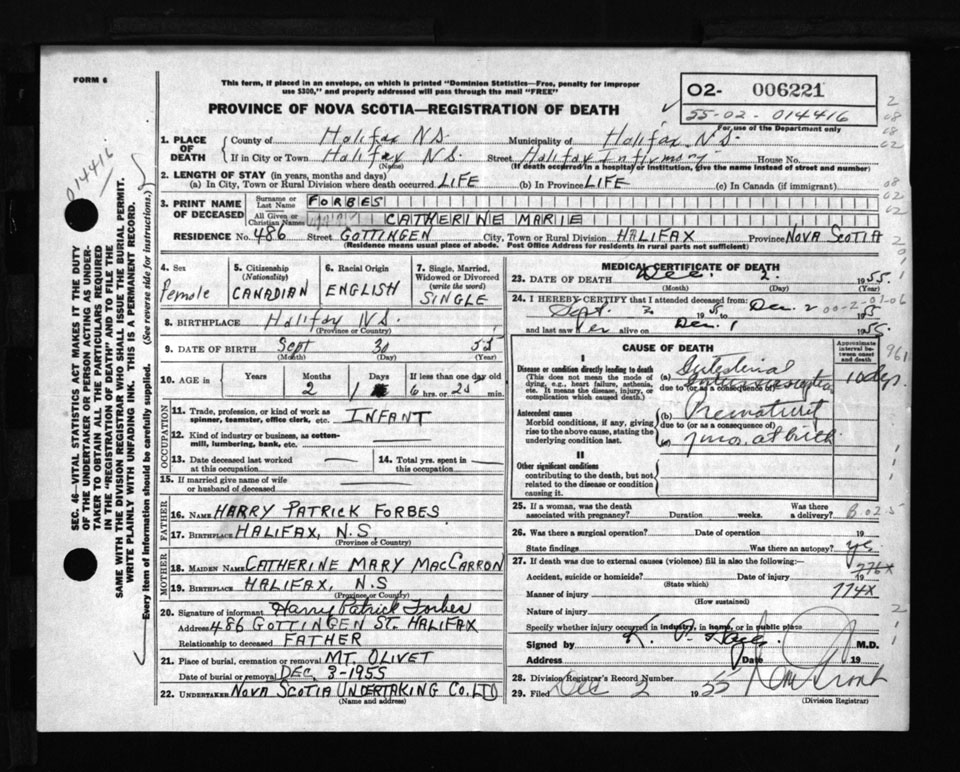 FORM 6
This form, if placed in an envelope, on which is printed "Dominion Statistics—Free, penalty for improper
use $300," and properly addressed will pass through the mail "FREE"
PROVINCE OF NOVA SCOTIA—REGISTRATION OF DEATH
O2- 006221
55-02-014416
For use of the Department only
014416
SEC. 46—VITAL STATISTICS ACT MAKES IT THE DUTY
OF THE UNDERTAKER OR PERSON ACTING AS UNDER-
TAKER TO OBTAIN ALL THE PARTICULARS REQUIRED
IN THE "REGISTRATION OF DEATH" AND TO FILE THE
SAME WITH THE DIVISION REGISTRAR WHO SHALL ISSUE THE BURIAL PERMIT.
WRITE PLAINLY WITH UNFADING INK. THIS IS A PERMANENT RECORD.
Every item of Information should be carefully supplied. (See reverse side for instructions.)
1. PLACE OF DEATH { County of Halifax N.S. Municipality of Halifax N.S.
If in City or Town Halifax N.S. Street Halifax Infirmary House No.
(Name) (If death occurred in a hospital or institution, give the name instead of street and number)
2. LENGTH OF STAY (in years, months and days)
(a) In City, Town or Rural Division where death occurred LIFE (b) In Province LIFE (c) In Canada (if immigrant)
3. PRINT NAME OF DECEASED { Surname or Last Name FORBES
All Given or Christian Names CATHERINE MARIE
RESIDENCE No. 486 Street GOTTINGEN City, Town or Rural Division HALIFAX Province NOVA SCOTIA
(Residence means usual place of abode. Post Office Address for residents in rural parts not sufficient)
4. Sex Female
5. Citizenship (Nationality) CANADIAN
6. Racial Origin ENGLISH
7. Single, Married, Widowed or Divorced (write the word) SINGLE
8. BIRTHPLACE Halifax N.S.
(Province or Country)
9. DATE OF BIRTH Sept 30 55
(Month) (Day) (Year)
10. AGE in { Years Months Days If less than one day old
2 1 6 hrs. or 25 min.
OCCUPATION
11. Trade, profession, or kind of work as spinner, teamster, office clerk, etc. INFANT
12. Kind of industry or business, as cotton-mill, lumbering, bank, etc.
13. Date deceased last worked at this occupation
14. Total yrs. spent in this occupation
15. If married give name of wife or husband of deceased
FATHER
16. NAME HARRY PATRICK FORBES
17. BIRTHPLACE HALIFAX, N.S.
(Province or Country)
MOTHER
18. MAIDEN NAME CATHERINE MARY MACCARRON
19. BIRTHPLACE HALIFAX, N.S
(Province or Country)
20. Signature of informant Harry Patrick Forbes
Address 486 GOTTINGEN ST. HALIFAX
Relationship to deceased FATHER
21. Place of burial, cremation or removal MT. OLIVET
Date of burial or removal DEC. 3-1955
22. UNDERTAKER NOVA SCOTIA UNDERTAKING CO. LTD
(Name and address)
MEDICAL CERTIFICATE OF DEATH
23. DATE OF DEATH Dec 2. 1955
(Month) (Day) (Year)
24. I HEREBY CERTIFY that I attended deceased from:
Sept. 1955 to Dec. 2 1955
and last saw her alive on Dec. 1 1955.
CAUSE OF DEATH
Approximate interval between onset and death
I
Disease or condition directly leading to death
(This does not mean the mode of dying, e.g., heart failure, asthenia, etc. It means the disease, injury, or complication which caused death.)
(a) Intestinal Intussusception 10 days
due to (or as a consequence of)
Antecedent causes
Morbid conditions, if any, giving rise to the above cause, stating the underlying condition last.
(b) Prematurity
due to (or as a consequence of)
(c) 7 mos. at birth
II
Other significant conditions
contributing to the death, but not related to the disease or condition causing it.
961
25. If a woman, was the death associated with pregnancy? Duration weeks. Was there a delivery?
26. Was there a surgical operation? Date of operation 19
State findings Was there an autopsy? yes
27. If death was due to external causes (violence) fill in also the following:—
Accident, suicide or homicide? Date of injury 19
(State which)
776X
Manner of injury 774X
(How sustained)
Nature of injury
Specify whether injury occurred in industry, in home, or in public place
Signed by M.D.
Address Date 19
28. Division Registrar's Record Number
29. Filed Dec 2 1955
(Division Registrar)